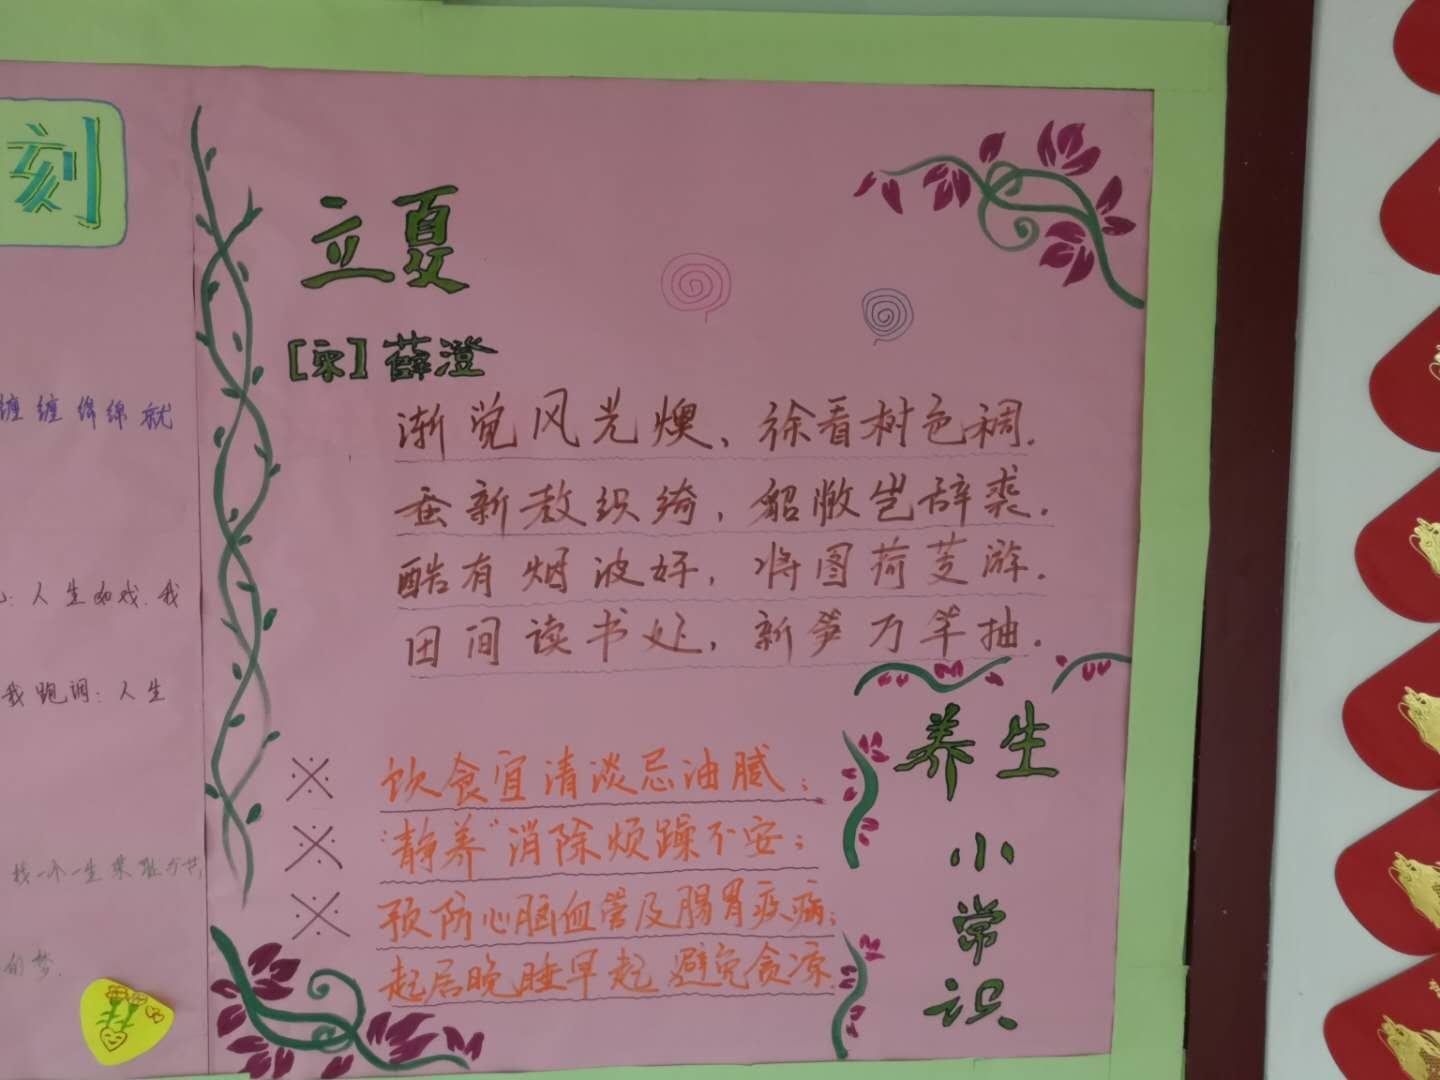 刻
缠缠绵绵就
人生如戏.我
我跑调:人生
的梦.
立夏
[宋]薛澄
渐觉风光燠、徐看树色稠.
蚕新教织绮,貂敝岂辞裘.
酷有烟波好,将图荷芰游.
田间读书处,新笋万竿抽.
养生
小常识
※ 饮食宜清淡忌油腻;
※ "静养"消除烦躁不安;
※ 预防心脑血管及肠胃疾病;
起居晚睡早起 避免贪凉.